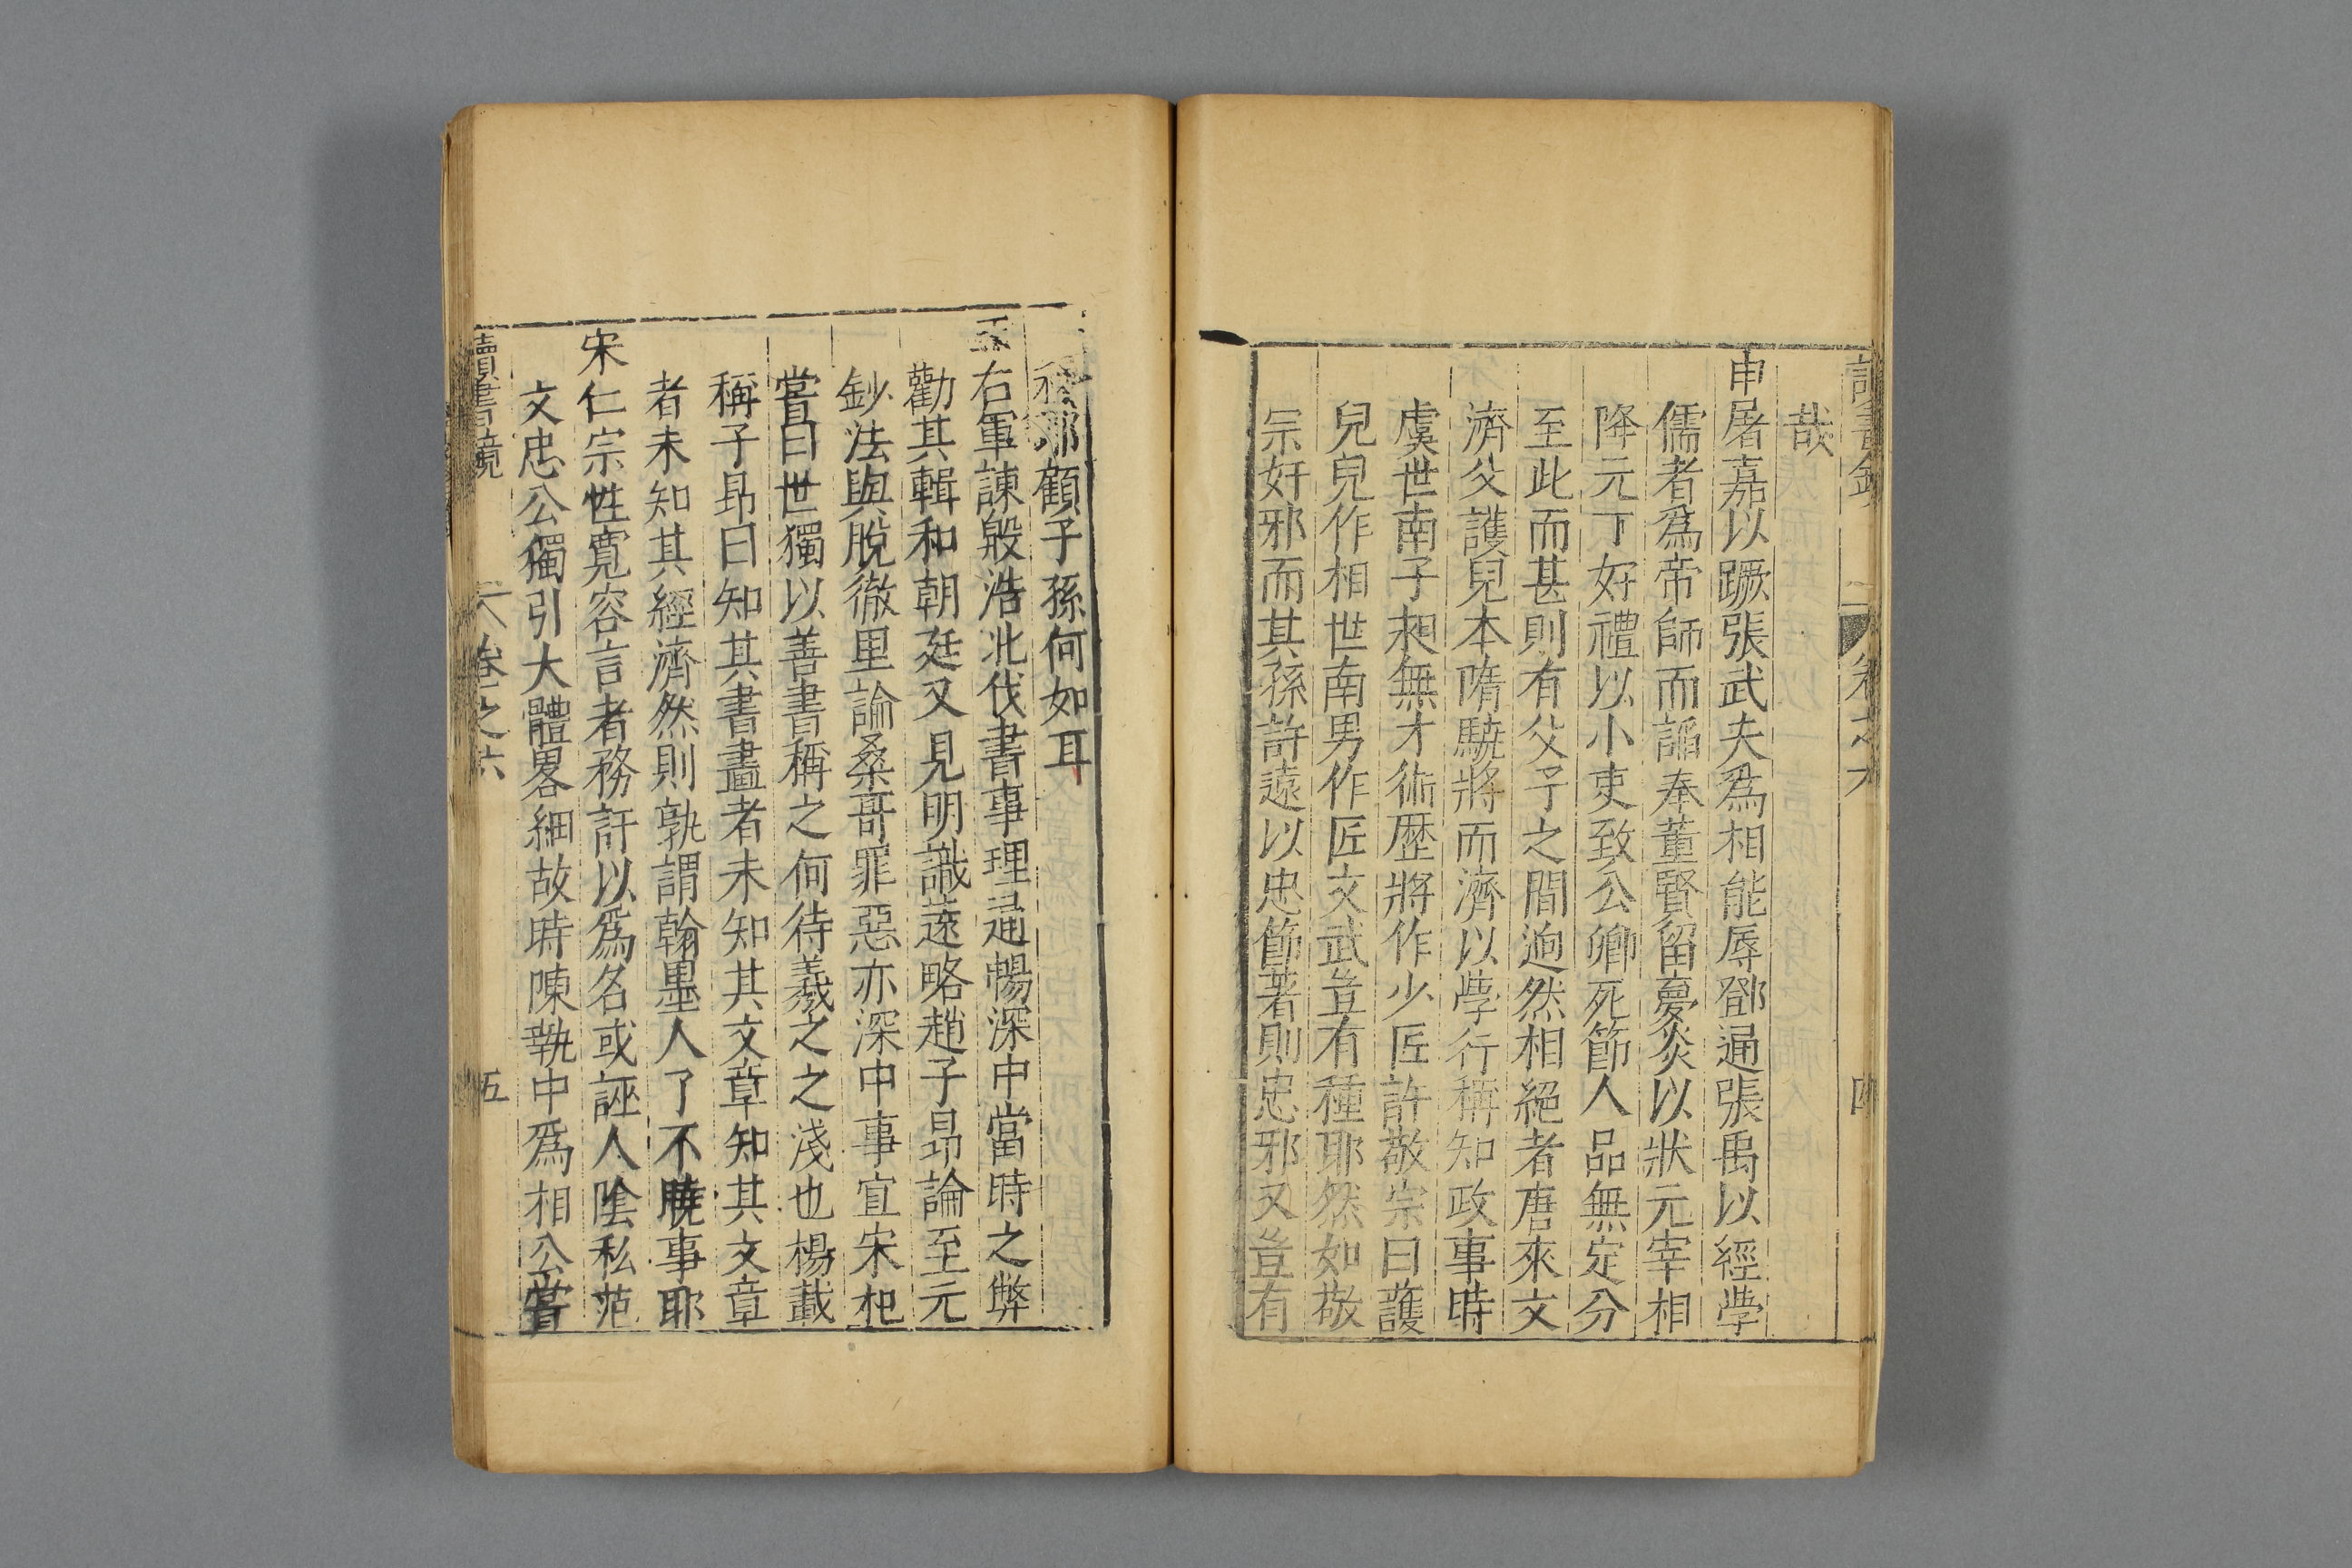 書鏡 卷之六 四
哉
申屠嘉以蹶張武夫爲相能辱鄧通張禹以經學
儒者爲帝師而謟奉董賢留夢炎以狀元宰相
降元丁好禮以小吏致公卿死節人品無定分
至此而甚則有父子之間逈然相絕者唐來文
濟父護兒本隋驍將而濟以學行稱知政事時
虞世南子昶無才術歴將作少匠許敬宗曰護
兒兒作相世南男作匠文武豈有種耶然如敬
宗奸邪而其孫許遠以忠節著則忠邪又豈有
種耶顧子孫何如耳
王右軍諫殷浩北伐書事理通暢深中當時之弊
勸其輯和朝廷又見明識遠略趙子昻論至元
鈔法與脫徹里論桑哥罪惡亦深中事宜宋杞
嘗曰世獨以善書稱之何待羲之之淺也楊載
稱子昻曰知其書畵者未知其文章知其文章
者未知其經濟然則孰謂翰墨人了不曉事耶
宋仁宗性寬容言者務訐以爲名或誣人陰私范
文忠公獨引大體畧細故時陳執中爲相公嘗
讀書鏡 卷之六 五